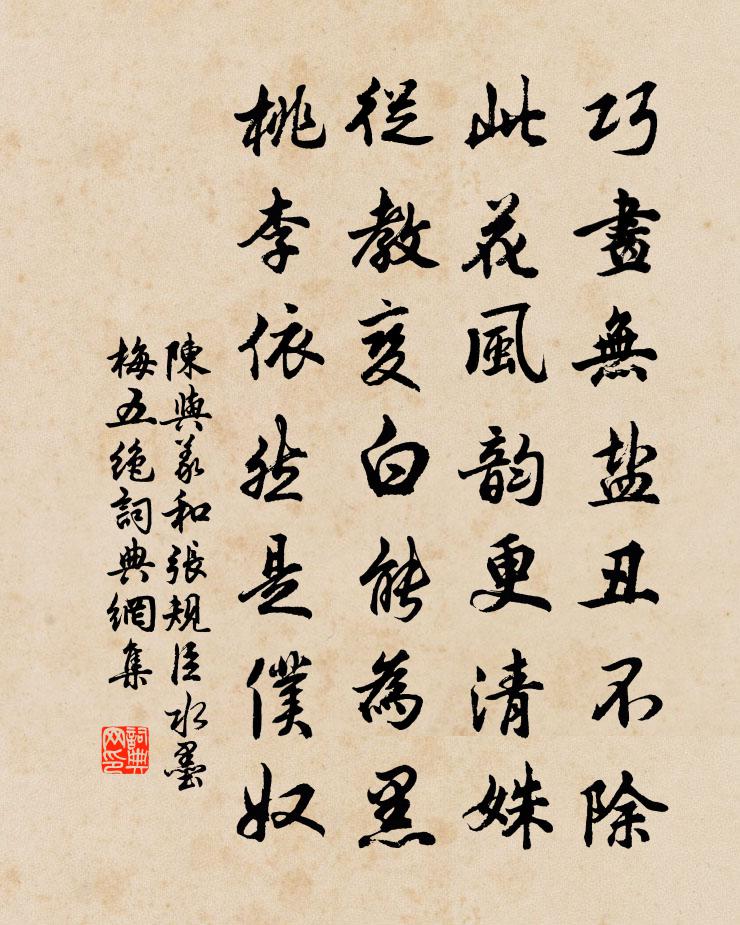 巧畫無盐丑不除
此花風韵更清姝
從教變白能為黑
桃李依然是僕奴
陳與義和張規臣水墨
梅五绝詞典網集
詞典网印